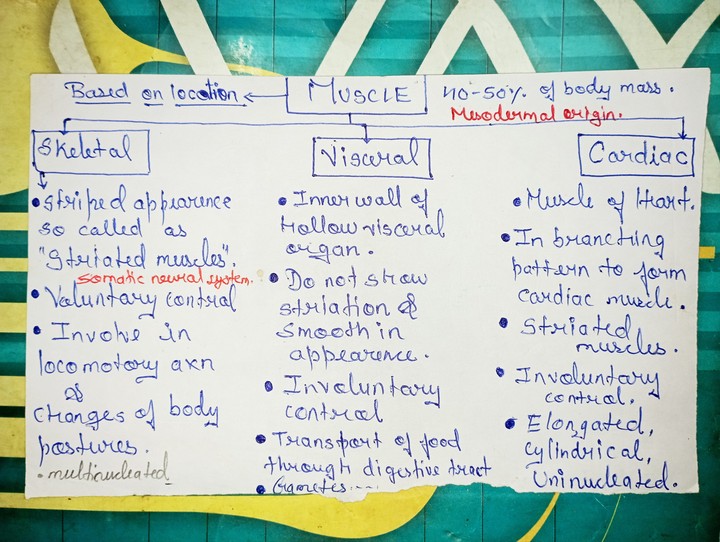 Based on location
MUSCLE
40-50% of body mass.
Mesodermal origin.
Skeletal
• Striped appearence
so called as
"Striated muscles".
somatic neural system.
• Voluntary control
• Involve in
locomotory axn
&
changes of body
postures.
• multinucleated
Visceral
• Inner wall of
Hollow visceral
organ.
• Do not show
striation &
smooth in
appearence.
• Involuntary
control
• Transport of food
through digestive tract
• Gametes....
Cardiac
• Muscle of Heart.
• In branching
pattern to form
cardiac muscle.
• Striated
muscles.
• Involuntary
control.
• Elongated,
cylindrical,
Uninucleated.